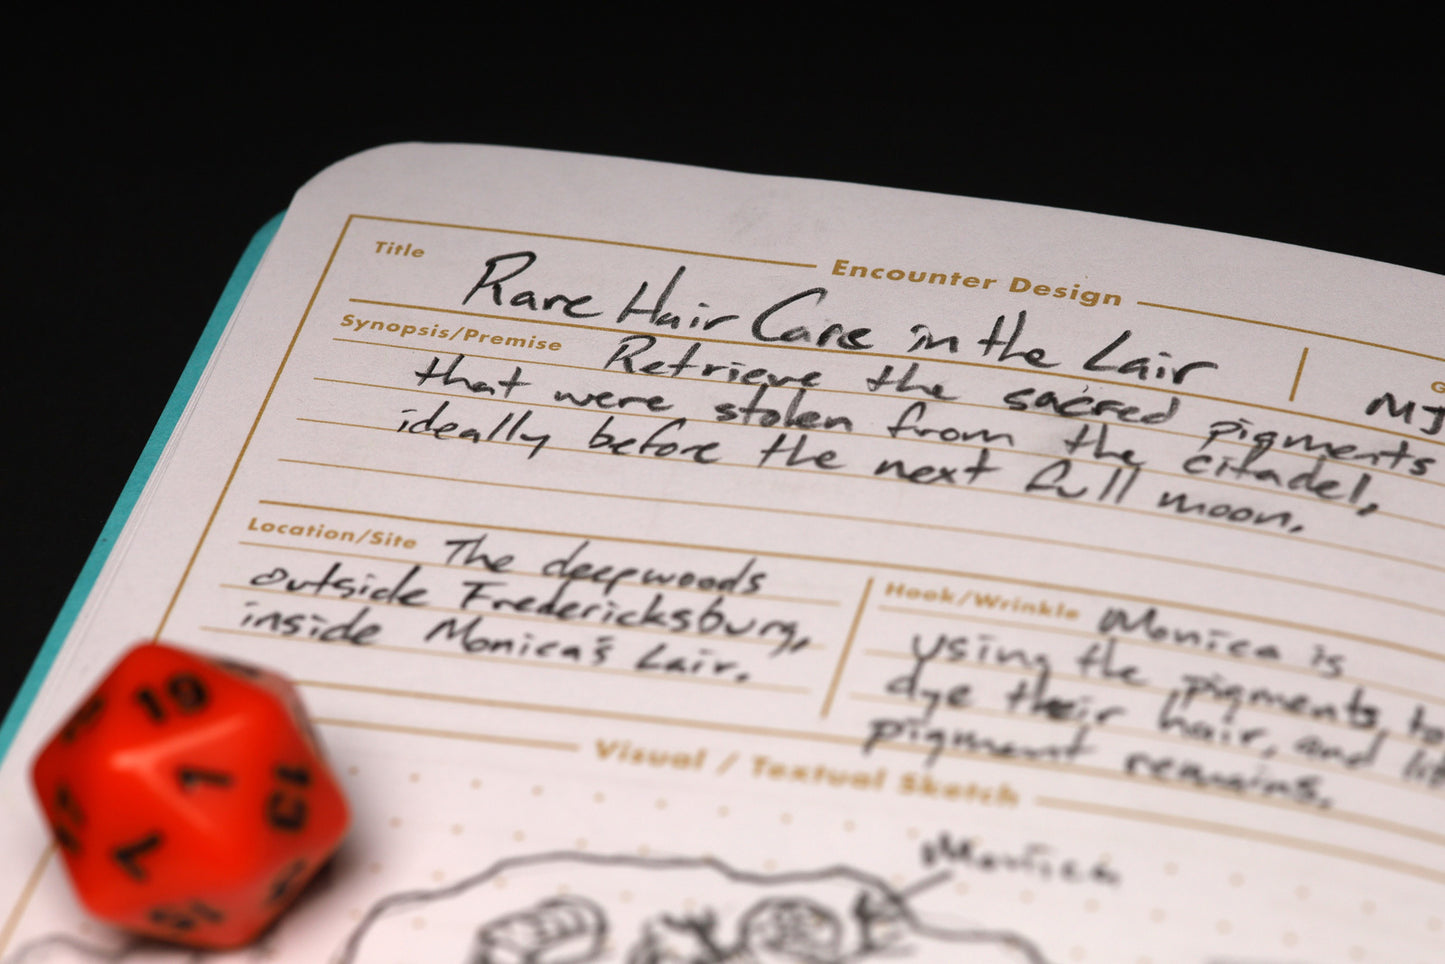 Encounter Design
Title Rare Hair Care in the Lair
MJ
Synopsis/Premise Retrieve the sacred pigments
that were stolen from the citadel,
ideally before the next full moon.
Location/Site The deepwoods
outside Fredericksburg,
inside Monica's Lair.
Hook/Wrinkle Monica is
using the pigments to
dye their hair, and
pigment remains.
Visual / Textual Sketch
Monica
19
1
13
7
17